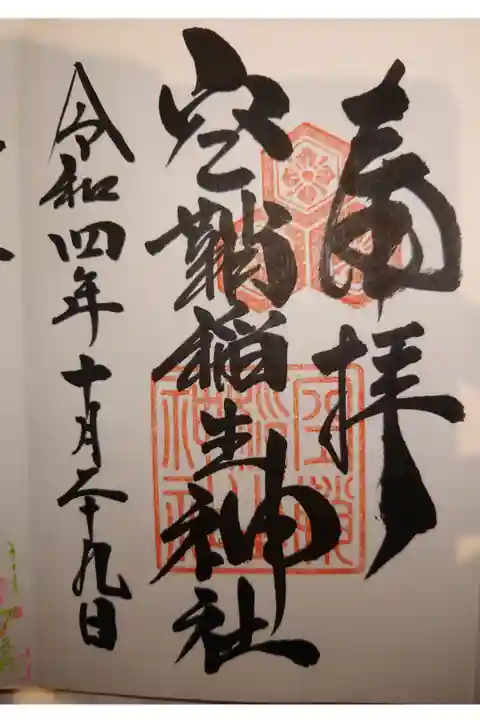 奉拝
空鞘稲生神社
令和四年十月二十九日